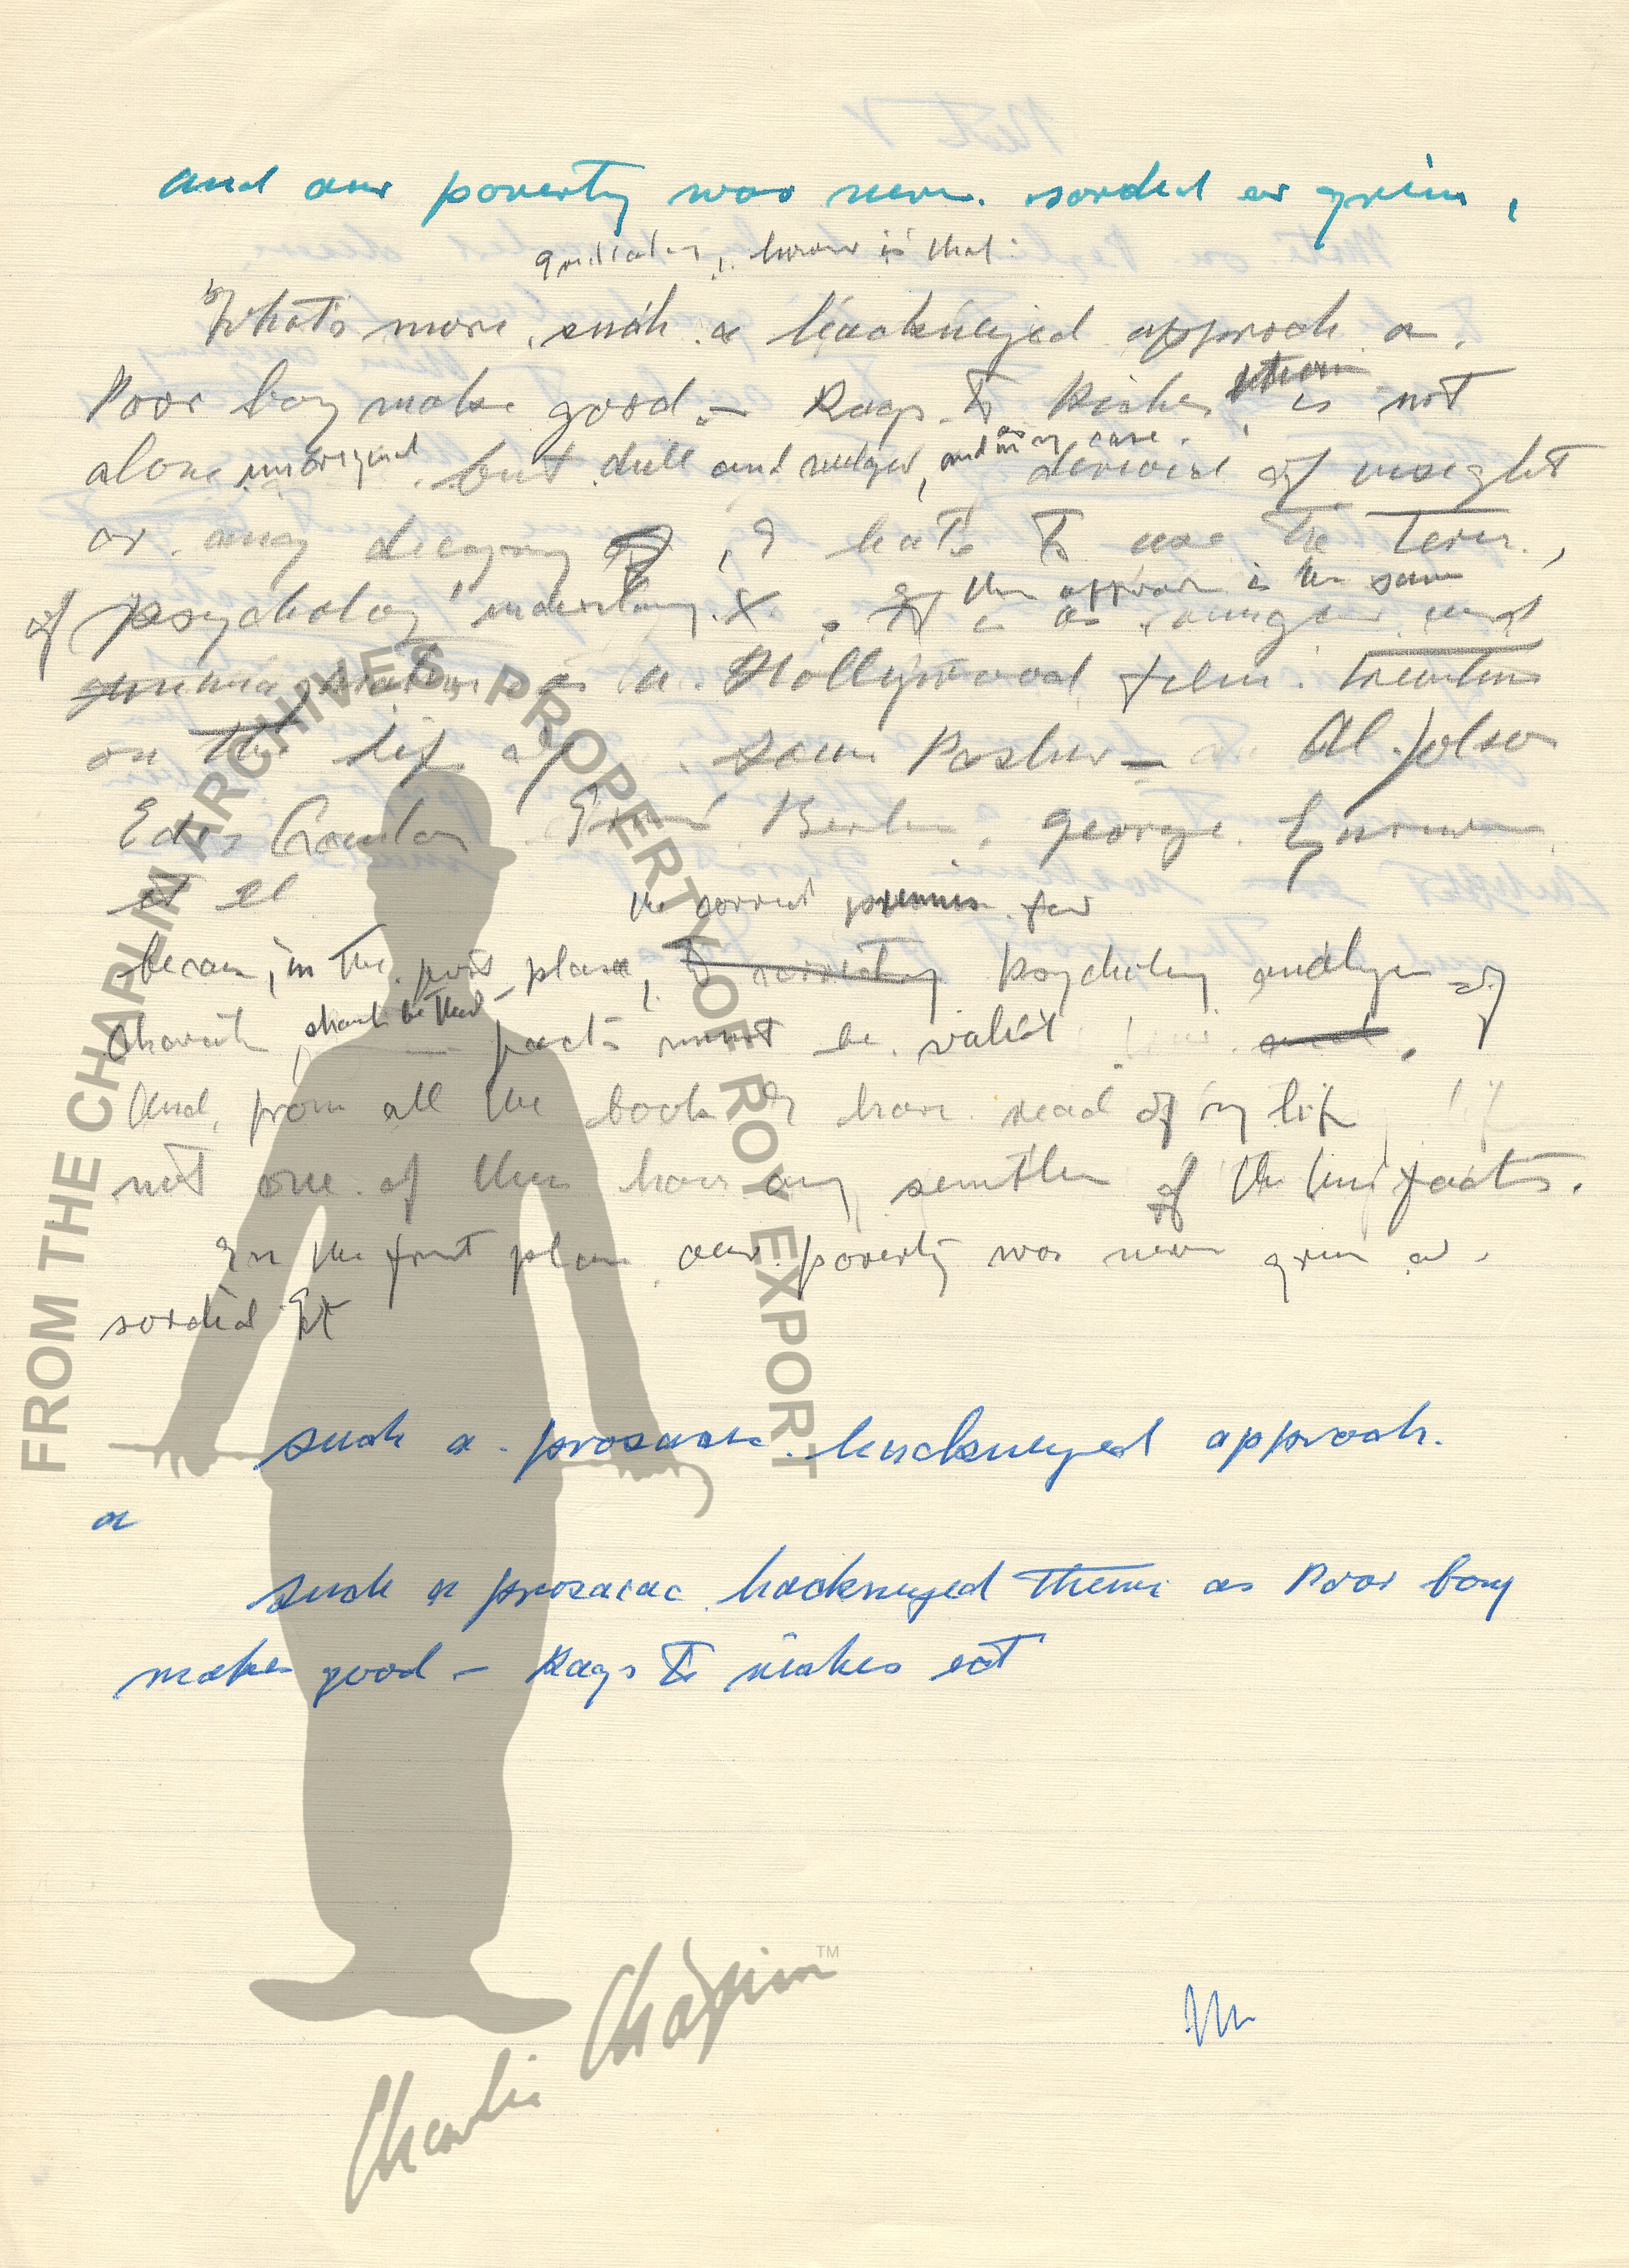 and our poverty was never sordid or grim,
how is that
What's more, such a hackneyed approach as
Poor boy make good – Rags to Riches is not
alone unoriginal but dull and vulgar, and in my case devoid of insight
or any I hate to use the term,
of psychology the approach is the same
as vulgar and
as a Hollywood film treatise
on the life of Louis Pasteur – Al Jolson
Berlin, George
et al
the correct premise for
because, in the first place, psychology analysis of
character should be that facts must be valid
And from all the books I have read of my life
not one of them have any semblance of the true facts.
In the first place our poverty was never grim or
sordid It
such a prosaic hackneyed approach
as
such a prosaiac hackneyed theme as Poor boy
makes good – Rags to riches ect
FROM THE CHAPLIN ARCHIVES PROPERTY OF ROY EXPORT
Charlie Chaplin TM